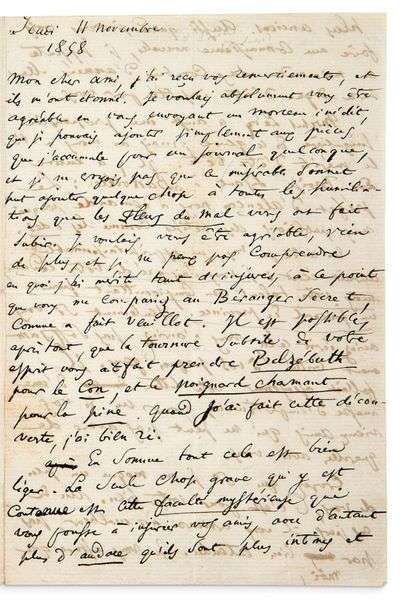 Jeudi 11 novembre
1858
Mon cher ami, j'ai reçu vos remerciements, et
ils m'ont étonné. Je voulais absolument vous être
agréable en vous envoyant un morceau inédit,
que je pouvais ajouter simplement aux pièces
que j'accumule pour un journal quelconque,
et je ne voyais pas que ce misérable sonnet
put ajouter quelque chose à toutes les humilia-
tions que les Fleurs du mal vous ont fait
subir. Je voulais vous être agréable, rien
de plus, et je ne peux pas comprendre
en quoi j'ai mérité tant d'injures, à ce point
que vous me compariez au Béranger secret,
comme a fait Veuillot. Il est possible,
après tout, que la tournure subtile de votre
esprit vous ait fait prendre Belzébuth
pour le Con, et le poignard charmant
pour la pine. Quand j'ai fait cette décou-
verte, j'ai bien ri.
En somme tout cela est bien
léger. La seule chose grave qui y est
contenue est cette faculté mystérieuse qui
vous pousse à injurier vos amis avec d'autant
plus d'audace qu'ils sont plus intimes et